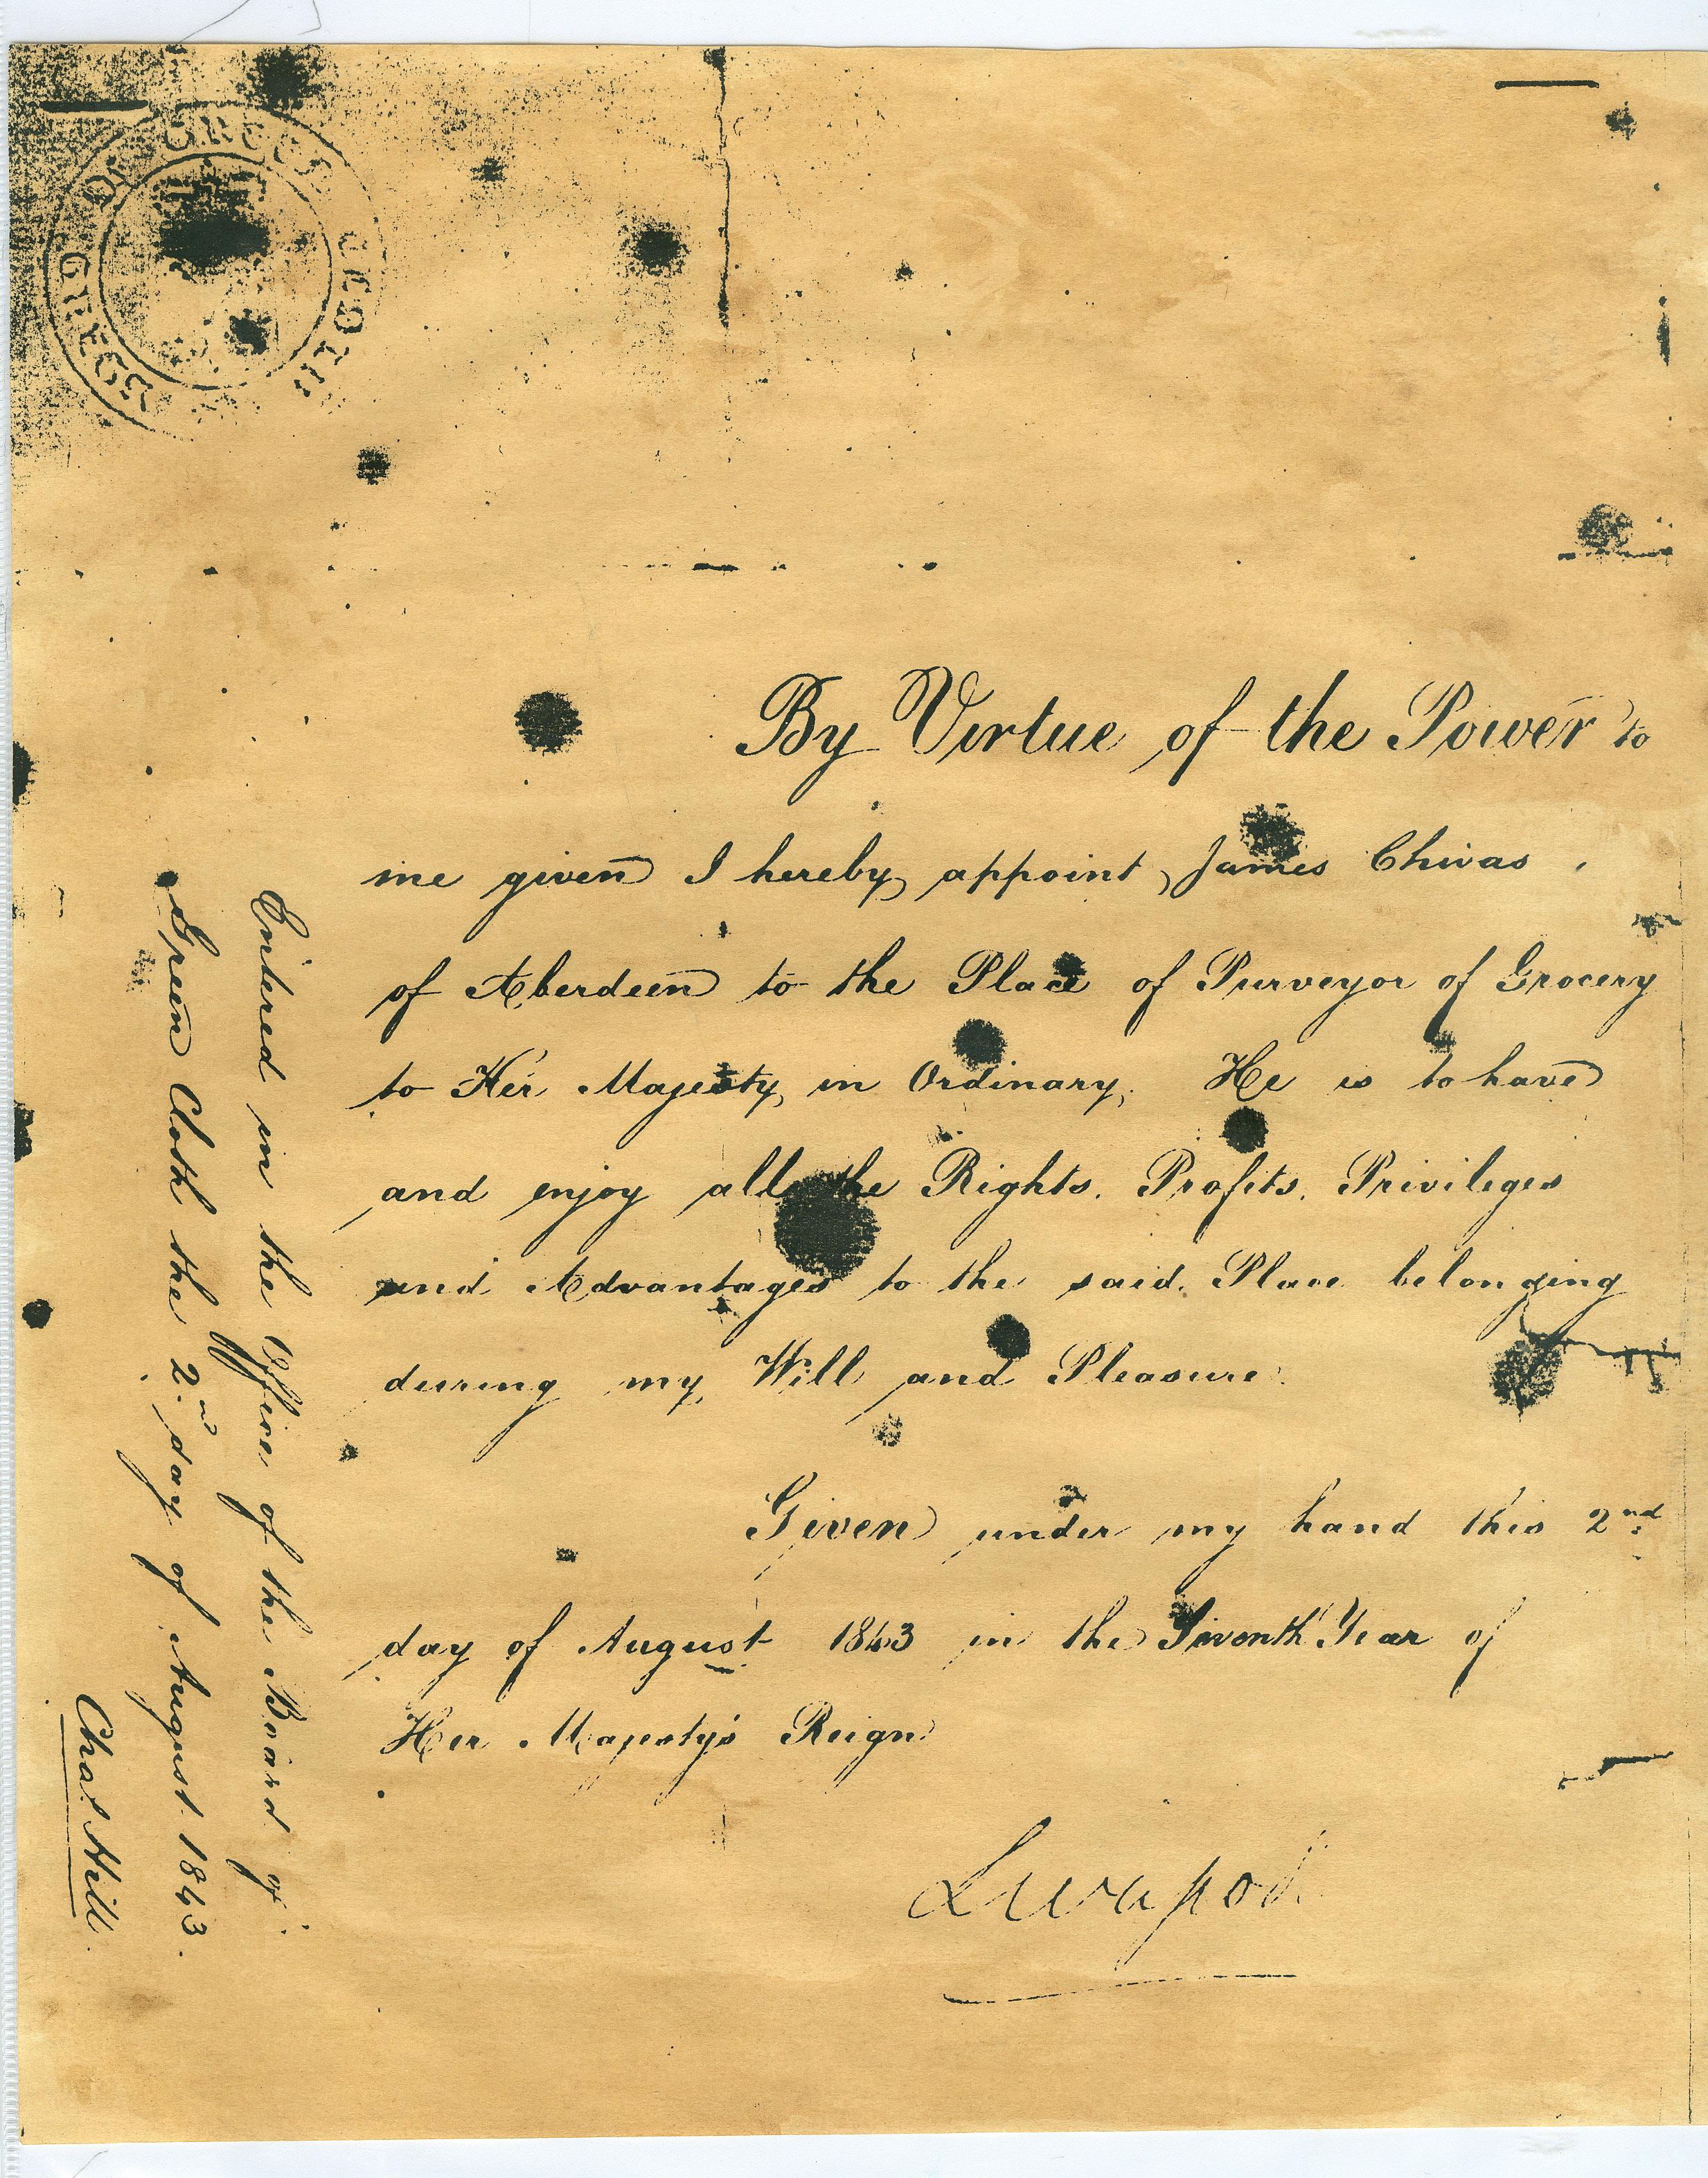 By Virtue of the Power to
me given I hereby appoint James Chivas
of Aberdeen to the Place of Purveyor of Grocery
to Her Majesty in Ordinary. He is to have
and enjoy all the Rights, Profits, Privileges
and Advantages to the said Place belonging
during my Will and Pleasure.
Given under my hand this 2nd
day of August 1843 in the Seventh Year of
Her Majesty's Reign
Liverpool
Entered in the Office of the Board of
Green Cloth the 2nd day of August 1843.
Chas. Hill
GREEN CLOTH